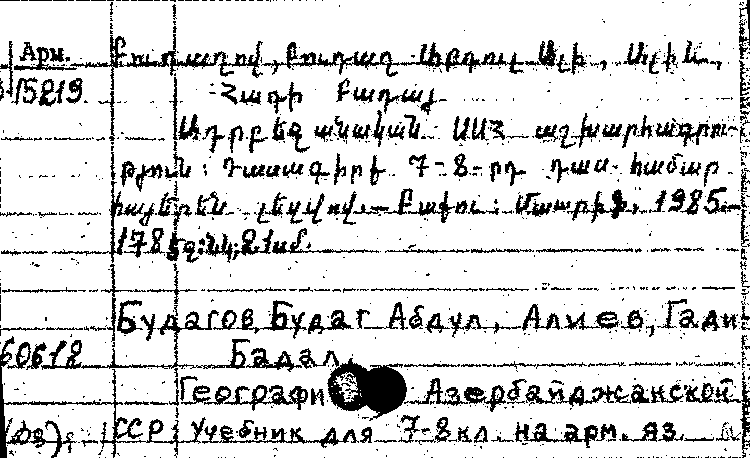 Арм.
Բուդաղով, Բուդաղ Աբդուլ Ալի, Ալիև,
15219
Հադի Բադալ
Ադրբեջանական ՍՍՀ աշխարհագրու-
թյուն: Դասագիրք 7-8-րդ դաս. համար
հայերեն լեզվով.— Բաքու: Մաարիֆ, 1985.—
178 էջ: նկ; 21սմ.
Будагов, Будаг Абдул, Алиев, Гади-
60612
Бадал.
Географи Азербайджанской
ССР: Учебник для 7-8 кл. на арм. яз.